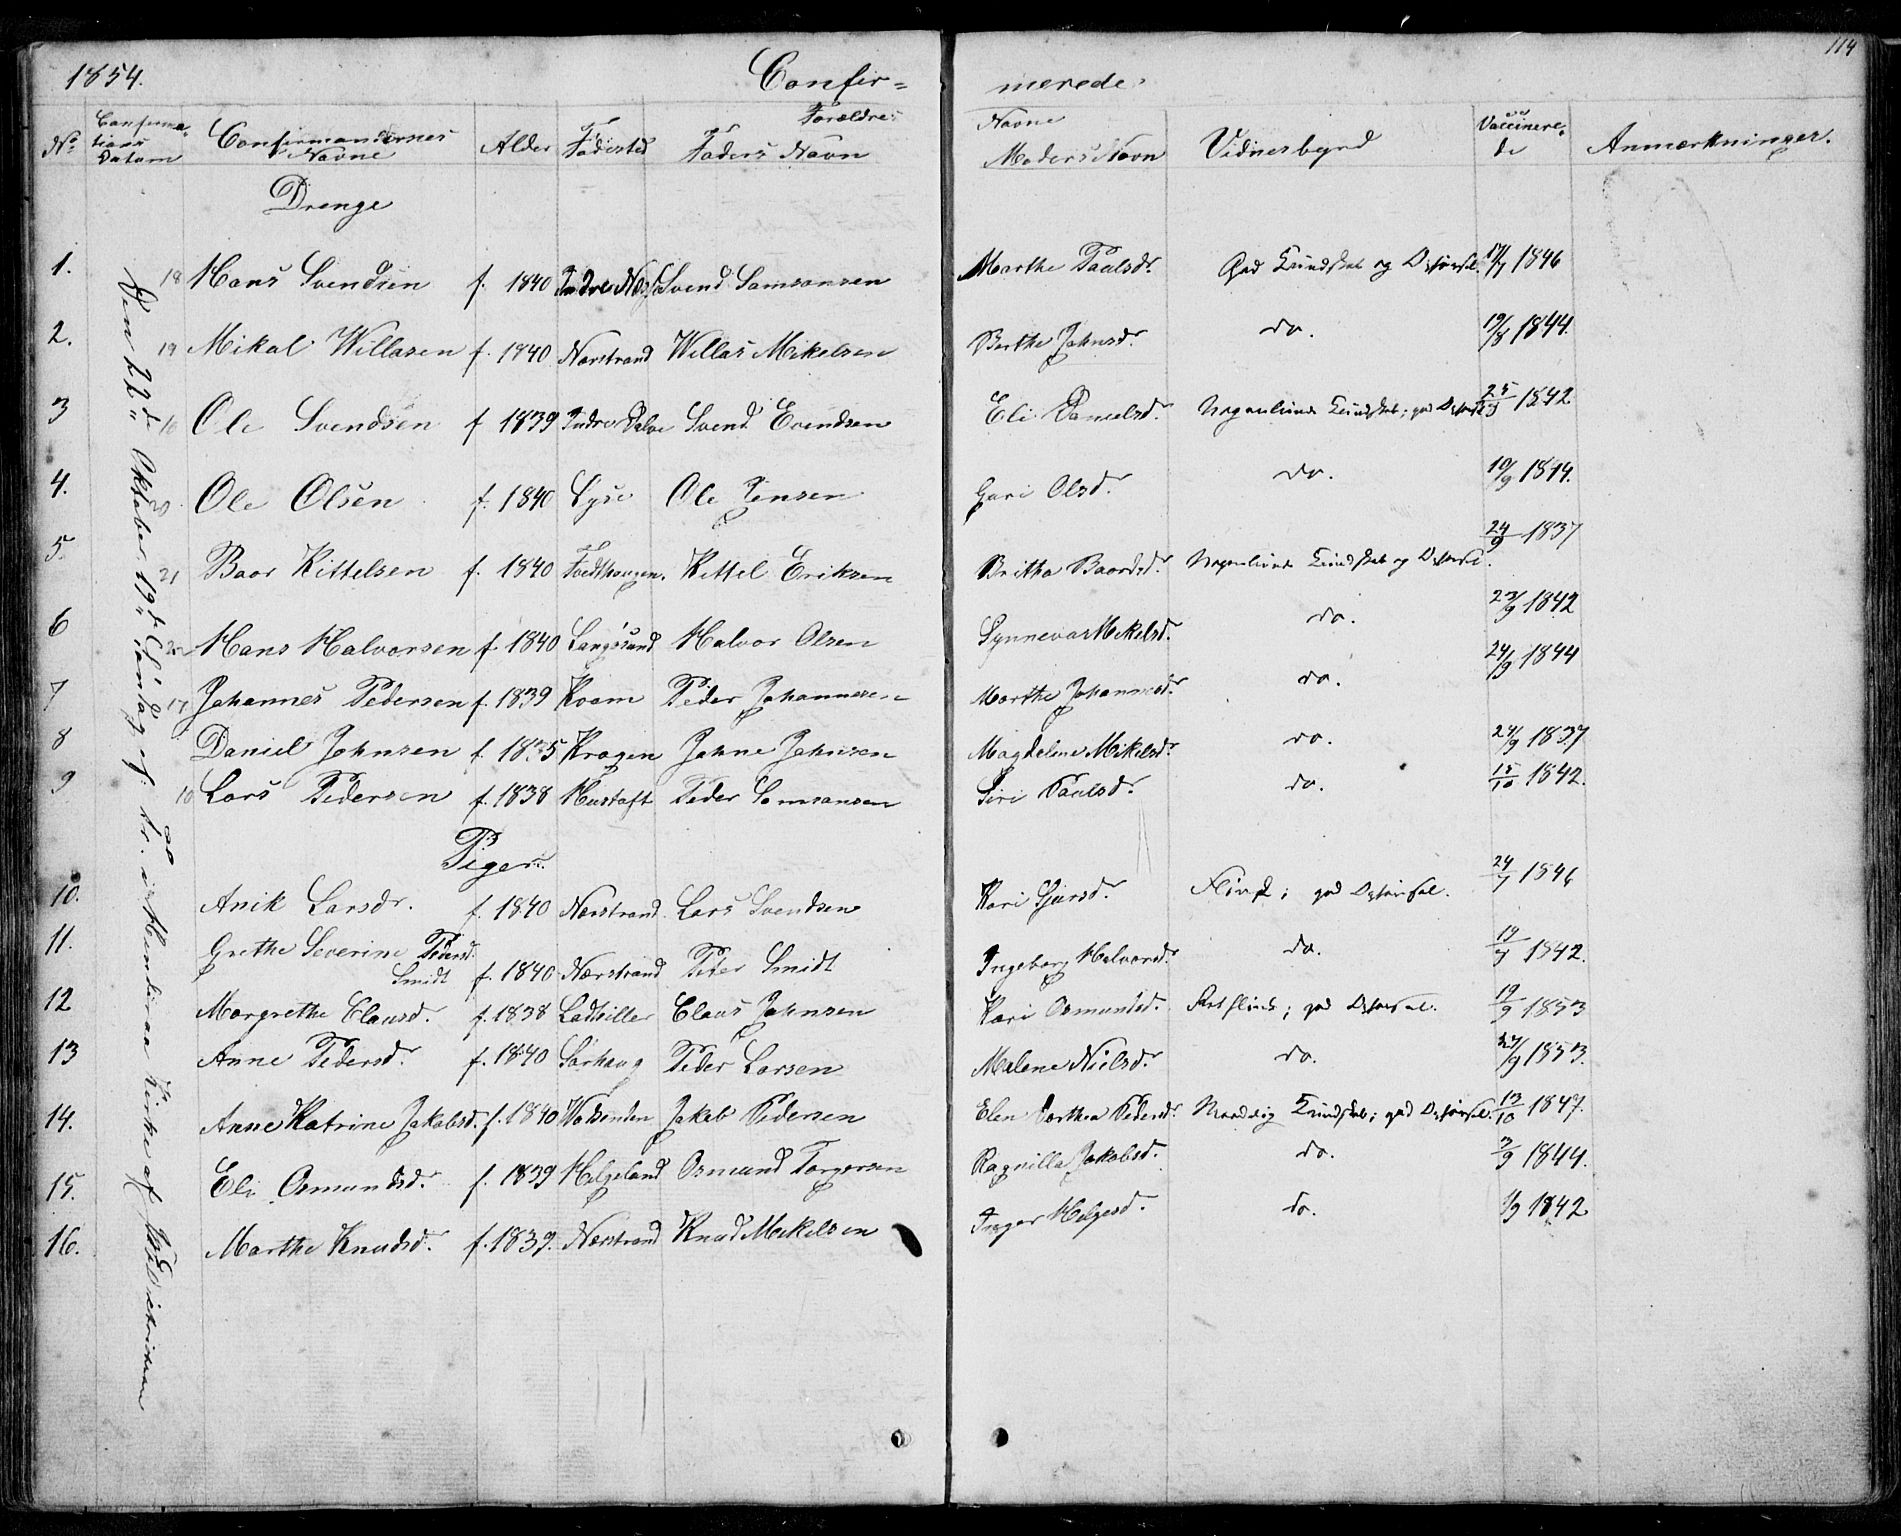 114
1854. Confir= merede.
Forældre: Navne
No Confirma-tions Datum Confirmandernes Navne Alder Fødested Faders Navn Moders Navn Vidnesbyrd Vaccinere-de Anmærkninger.
Drenge
1. 18 Hans Svendsen f. 1840 Indre Svend Samsonsen Marthe Paulsd. God Kundskab og Opførsel. 1846
2. 19 Mikal Willasen f. 1840 Nærstrand Willas Mikelsen Berthe Johnsd. do. 19/8 1844.
3 16 Ole Svendsen f 1839 Indre Svend Evendsen Eli Danielsd. Kundskab; god 1842
4. 20 Ole Olsen f. 1840 Lyse Ole Jensen Guri Olsd. do. 19/9 1844.
5. 21 Baar Kittelsen f. 1840 Kittel Eriksen Britha Baardsd. Kundskab og 24/9 1837
6 22 Hans Halvorsen f. 1840 Langøsund Halvor Olsen Synneva Mikelsd. do. 23/9 1842
7 17 Johannes Pedersen f. 1839 Kvam Peder Johannesen Marthe Johannesd. do. 24/9 1844
8 Daniel Johnsen f. 1835 Kragen Johne Johnsen Magdeline Mikelsd. do. 24/9 1837
9 10 Lars Pedersen f. 1838 Hustoft Peder Samsonsen Siri Paulsd. do. 15/10 1842.
Piger.
10. Anik Larsdr. f. 1840 Nærstrand Lars Svendsen Kari Sjursd. Flink; god Opførsel. 24/7 1846
11. Grethe Severine Pedersd. Smidt f. 1840 Nærstrand Peder Smidt Ingeborg Halvorsd. do. 1842.
12 Margrethe Clausd. f. 1838 Claus Johnsen Kari Osmundsd. flink; god Opførsel. 19/9 1853
13 Anne Pedersd. f. 1840 Sørhaug Peder Larsen Malene Nielsd. do. 1853.
14. Anne Katrine Jakobsd. f. 1840 Jakob Pedersen Elen Dorthea Pedersd. Kundskab; god Opførsel. 13/10 1847.
15. Eli Osmundsd. f. 1839 Helgeland Osmund Torgersen Ragnilla Jakobsd. do. 3/9 1844.
16. Marthe Knudsd. f. 1839. Nærstrand Knud Mikelsen Inger Helgesd. do. 1842
Den 22d Oktober, 19d Søndag ef. Tr. i Kirke af